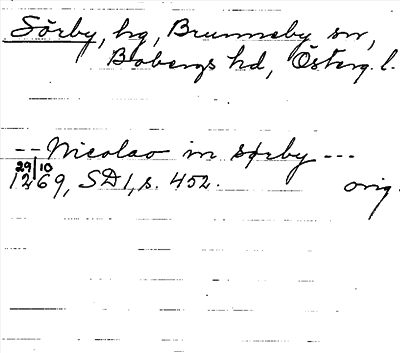 Sörby, hg, Brunneby sn,
Bobergs hd, Österg. l.
-- Nicolao in sørby ---
29/10
1269, SD1, s. 452. orig.